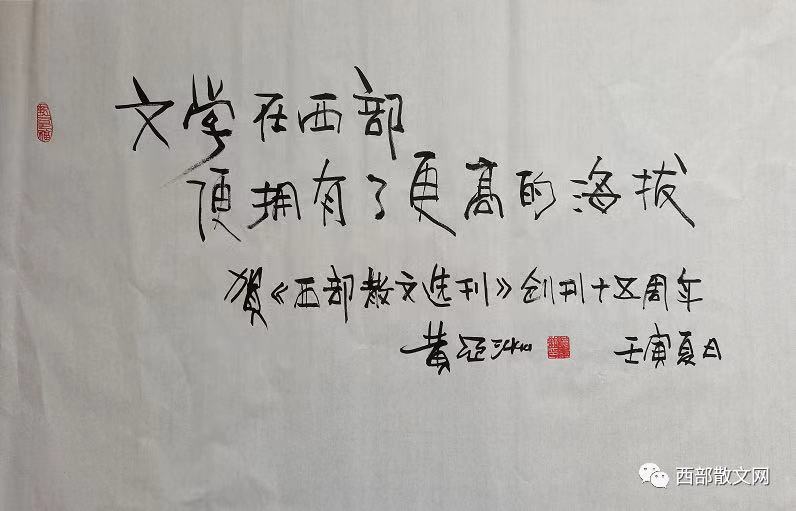 文学在西部
便拥有了更高的海拔
贺《西部散文选刊》创刊十五周年
黄亚洲 壬寅夏日
西部散文网